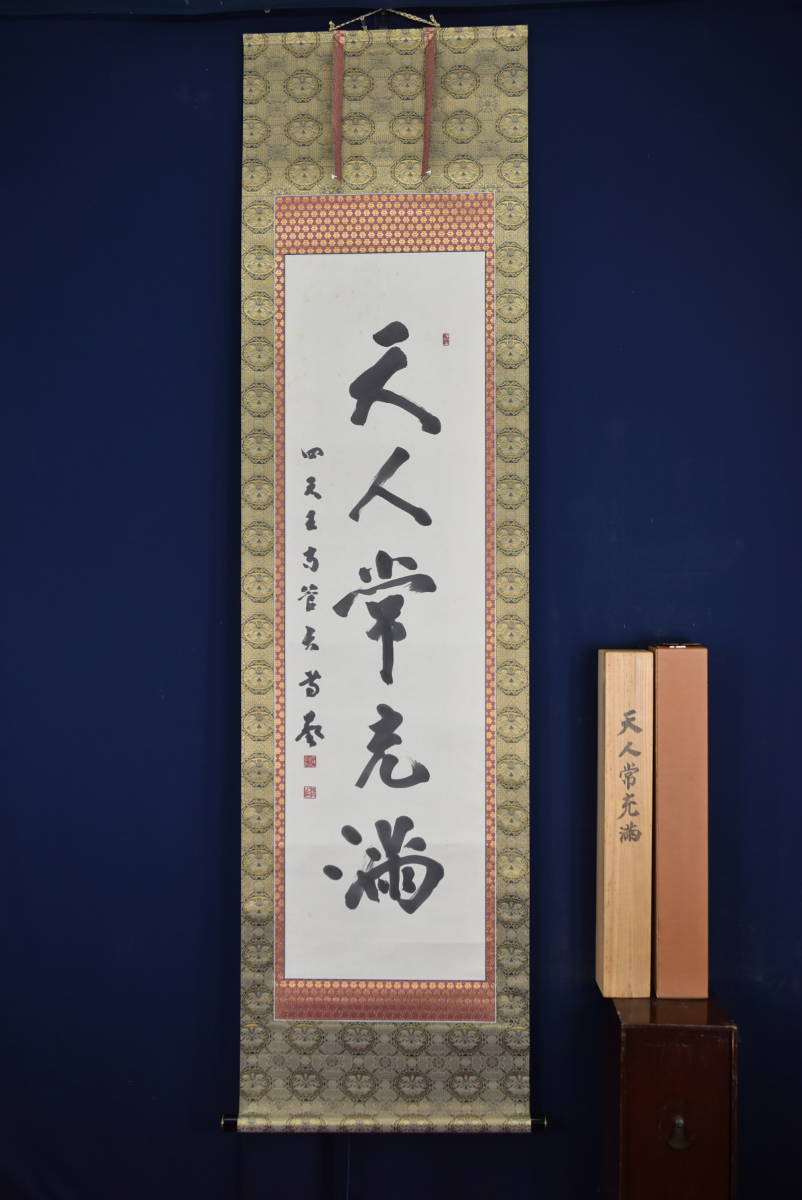 天人常充満
四天王寺管長
天人常充満